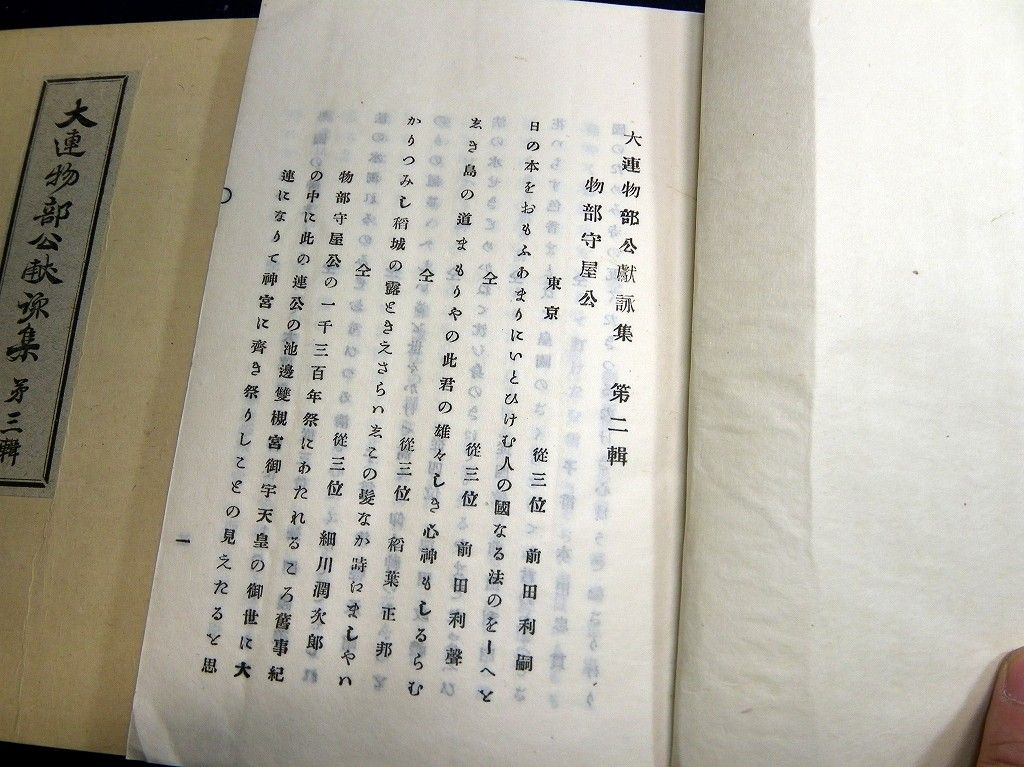 大連物部公獻詠集　第二輯
物部守屋公
東京　從三位　前田利嗣
日の本をおもふあまりにいとひけむ人の國なる法のをしへと
仝　從三位　前田利聲
ゑき島の道まもりやの此君の雄々しき心神もしるらむ
仝　從三位　稻葉正邦
かりつみし稻城の露ときえさらハゑこの髮なか
仝　從三位　細川潤次郎
物部守屋公の一千三百年祭にあたれるころ舊事紀
の中に此の連公の池邊雙槻宮御宇天皇の御世に大
連になりて神宮に齊き祭りしことの見えたるを思
一
大連物部公献詠集　第三輯